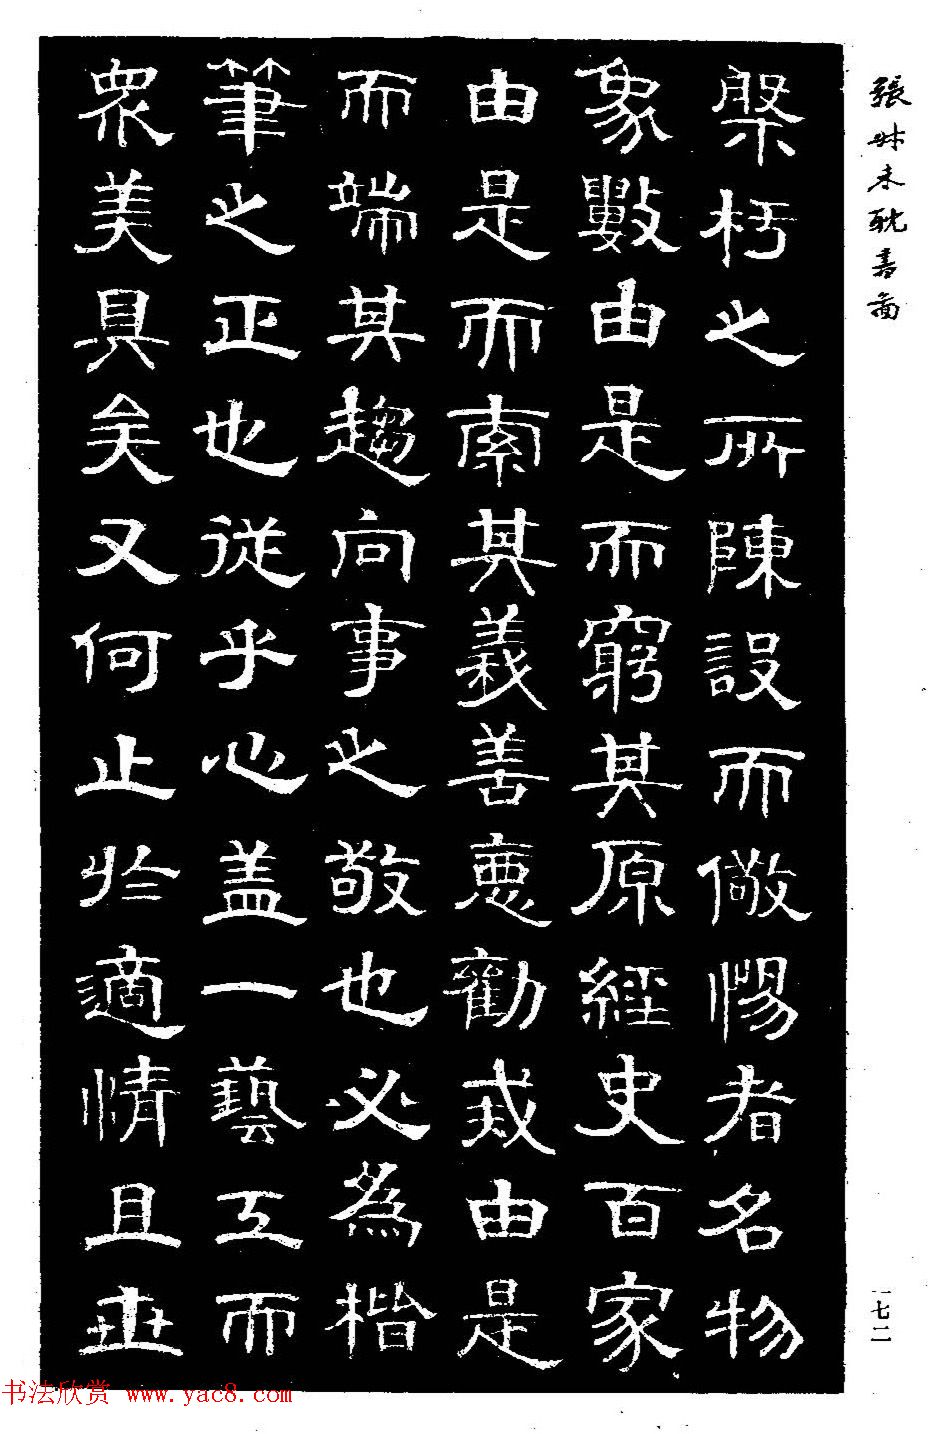 張叔未耽書圖
槃杅之所陳設而儆惕者名物
象數由是而窮其原經史百家
由是而索其義善惡勸戒由是
而端其趨向事之敬也必為楷
筆之正也從乎心盖一藝工而
眾美具矣又何止於適情且垂
一七二
书法欣赏 www.yac8.com